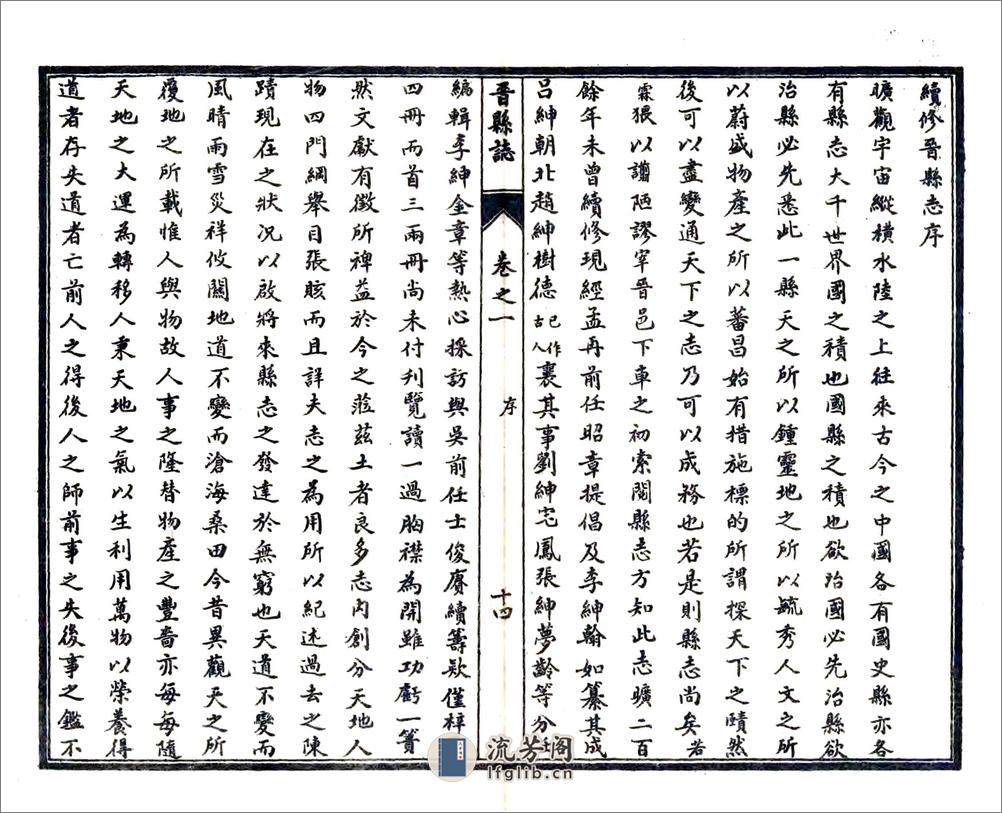 續修晉縣志序
曠觀宇宙縱橫水陸之上往來古今之中國各有國史縣亦各
有縣志大千世界國之積也國縣之積也欲治國必先治縣欲
治縣必先悉此一縣天之所以鍾靈地之所以毓秀人文之所
以蔚盛物產之所以蕃昌始有措施標的所謂探天下之賾然
後可以盡變通天下之志乃可以成務也若是則縣志尚矣若
霖猥以譾陋謬宰晉邑下車之初索閱縣志方知此志曠二百
餘年未曾續修現經孟再前任昭章提倡及李紳翰如纂其成
呂紳朝北趙紳樹德已作古人襄其事劉紳宅鳳張紳夢齡等分任
晉縣誌
卷之一
序
十四
編輯李紳金章等熱心採訪與吳前任士俊賡續籌欵僅梓
四冊而首三兩冊尚未付刊覽讀一過胸襟為開雖功虧一簣
然文獻有徵所裨益於今之蒞茲土者良多志內創分天地人
物四門綱舉目張賅而且詳夫志之為用所以紀述過去之陳
蹟現在之狀况以啟將來縣志之發達於無窮也天道不變而
風晴雨雪災祥攸關地道不變而滄海桑田今昔異觀天之所
覆地之所載惟人與物故人事之隆替物產之豐嗇亦每每隨
天地之大運為轉移人秉天地之氣以生利用萬物以榮養得
道者存失道者亡前人之得後人之師前事之失後事之鑑不
流芳阁
lfglib.cn